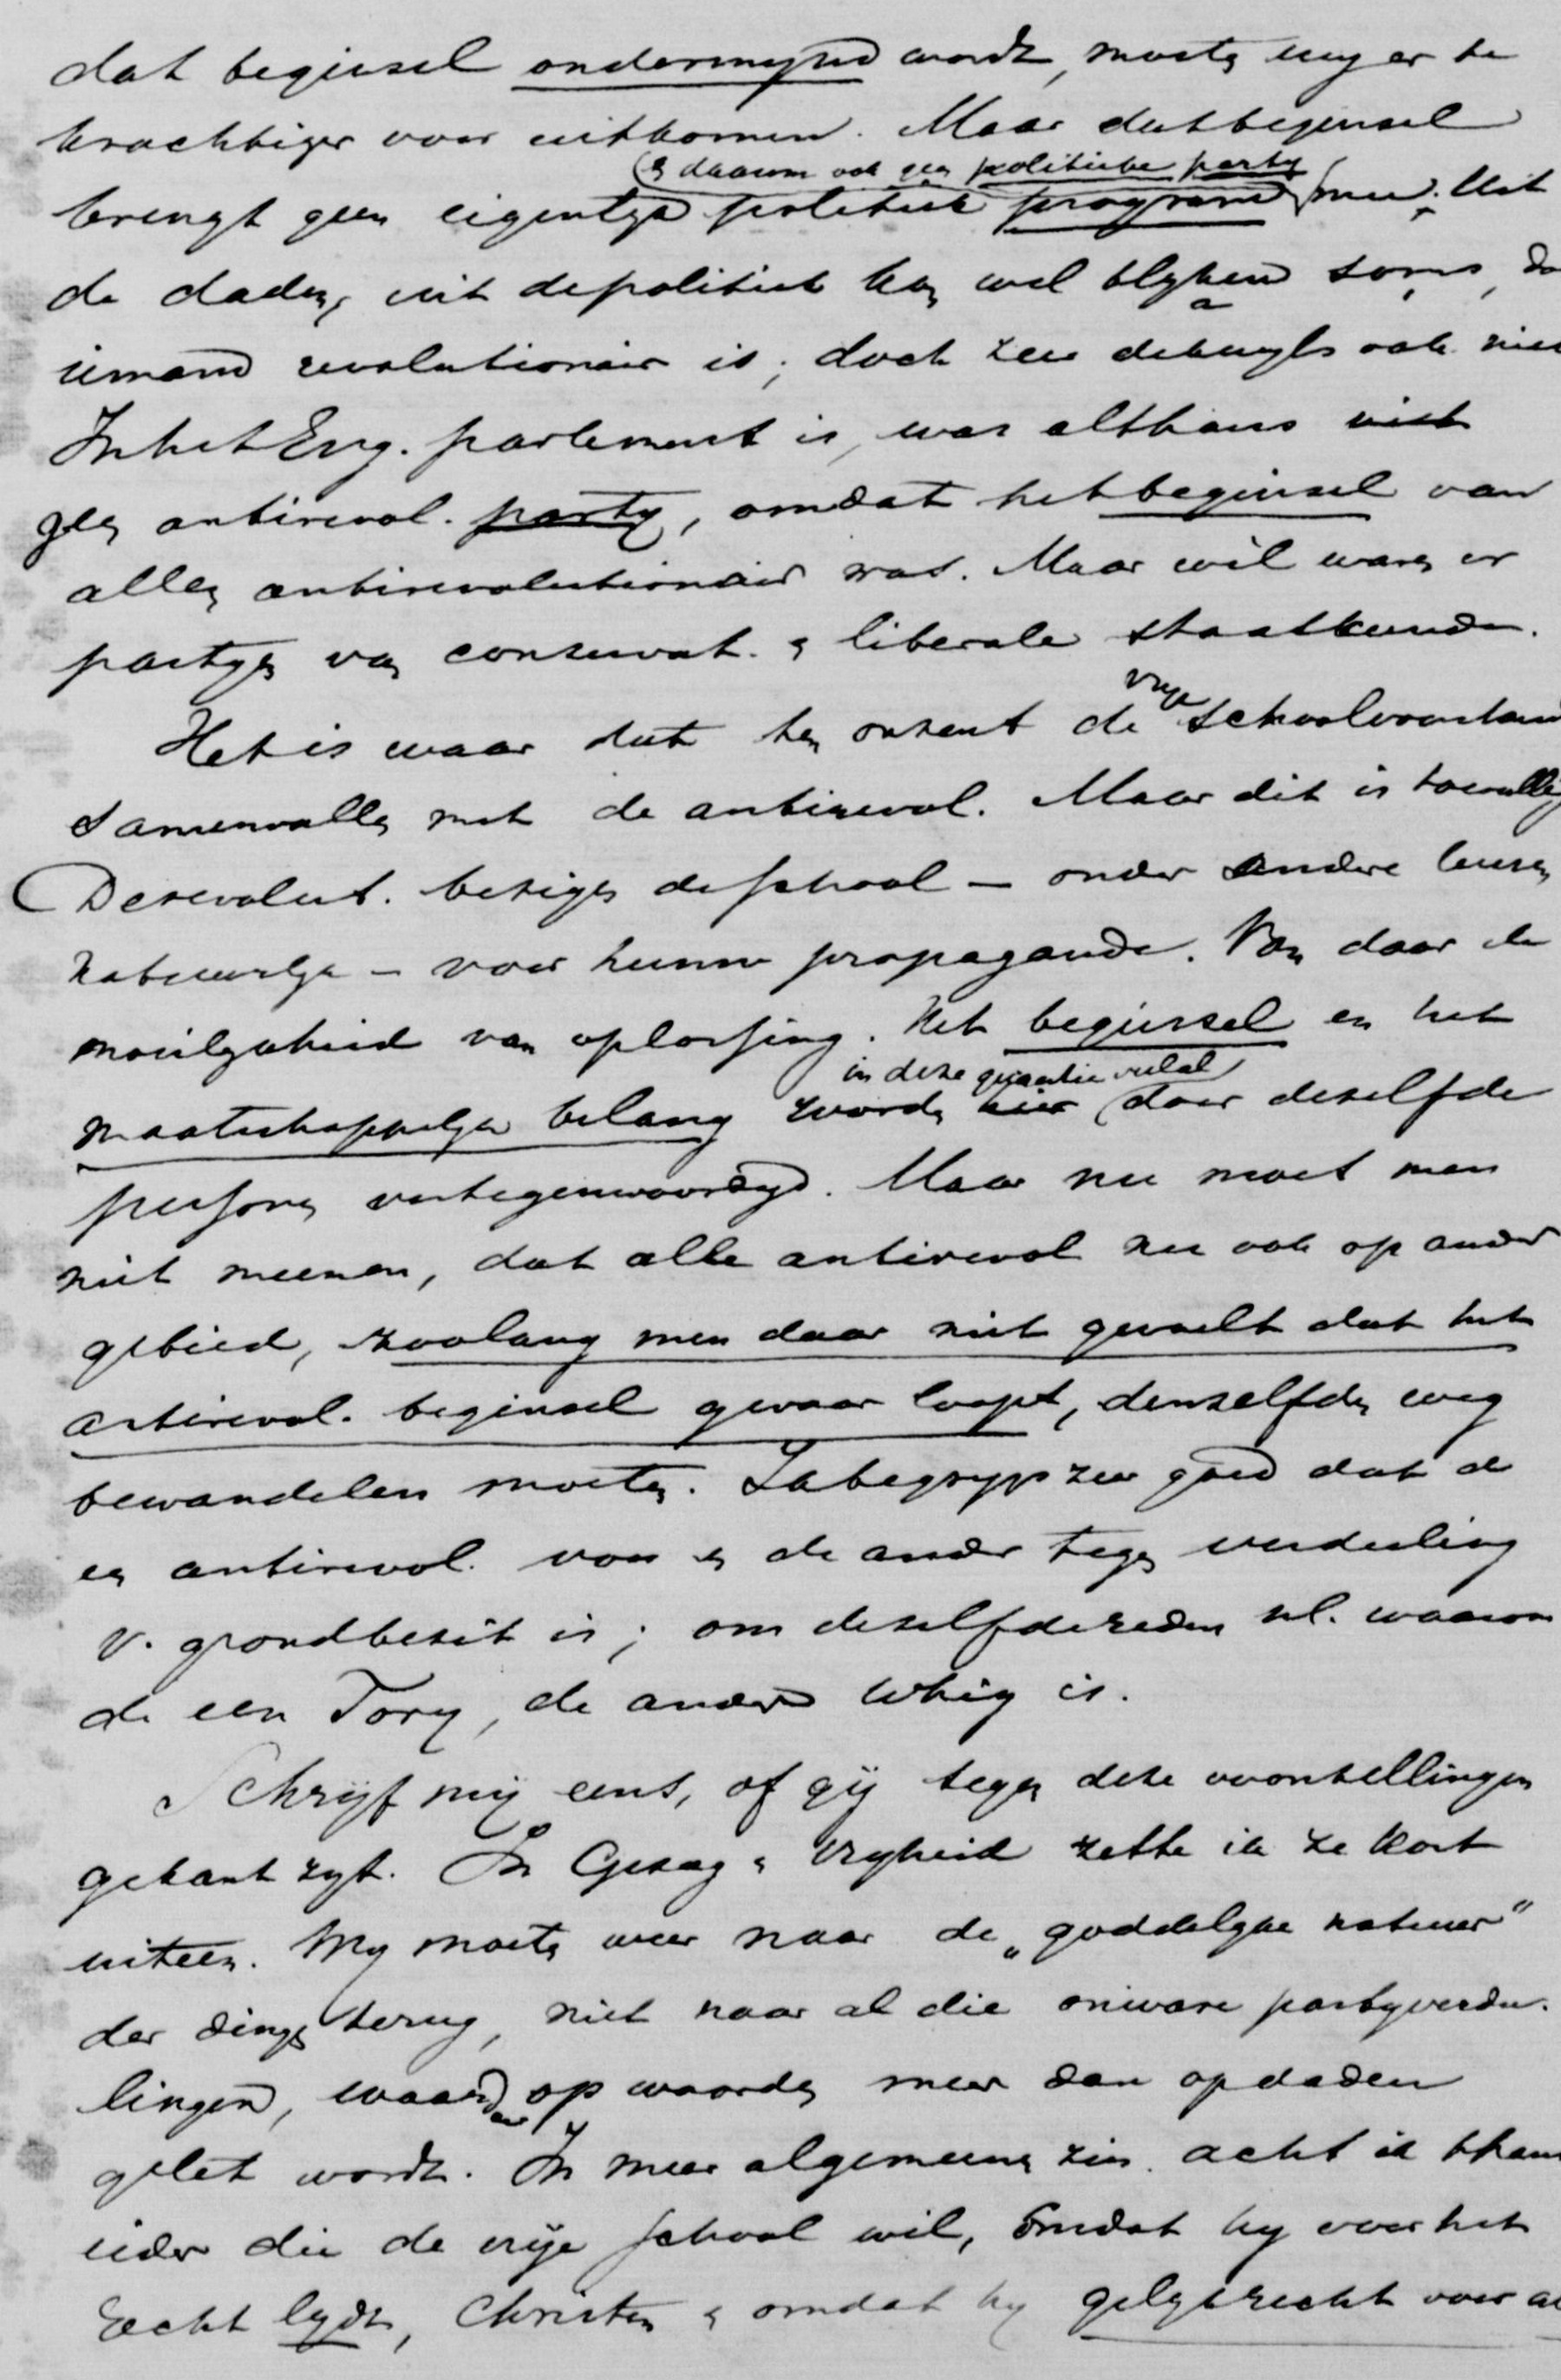 dat beginsel ondermynd wordt, moeten wy er te
krachtiger voor uitkomen. Maar dat beginsel
(& daarom ook geen politieke party
brengt geen eigentlyk politiek program mee. Uit
de daden, uit de politiek kan wel blyken soms, da
iemand revolutionair is; doch zeer dikwyls ook nie
In het Eng. parlement is, was althans niet
geen antirevol. party, omdat het beginsel van
allen antirevolutionair was. Maar wél waren er
partyen van conservat. & liberale staatkunde.
vrye
Het is waar dat ten onzent de schoolvoorstan
samenvallen met de antirevol. Maar dit is toevallig
De revolut. bezigen de school – onder andere leuzen
natuurlyk – voor hunne propagande. Van daar de
moeilykheid van oplossing. Het beginsel en het
in deze quaestie veelal
maatschappelyk belang worden hier door dezelfde
persoonen vertegenwoordigd. Maar nu moet men
niet meenen, dat alle antirevol nu ook op ander
gebied, zoolang men daar niet gevoelt dat het
antirevol. beginsel gevaar loopt, denzelfden weg
bewandelen moeten. Ik begryp zeer goed dat de
een antirevol. voor & de ander tegen verdeeling
v. grondbezit is; om dezelfde reden nl. waarom
de een Tory, de ander Whig is.
Schryf my eens, of gij tegen deze voorstellingen
gekant zyt. In Gezag & Vryheid zette ik ze kort
uiteen. Wy moeten weer naar de „goddelyke natuur"
der dingen terug, niet naar al die onware partyverdee-
lingen, waar op woorden meer dan op daden
gelet wordt. In meer algemeenen zin acht ik than
ieder die de vrije school wil, omdat hy voor het
recht lydt, Christen & omdat hy gelyk recht voor al